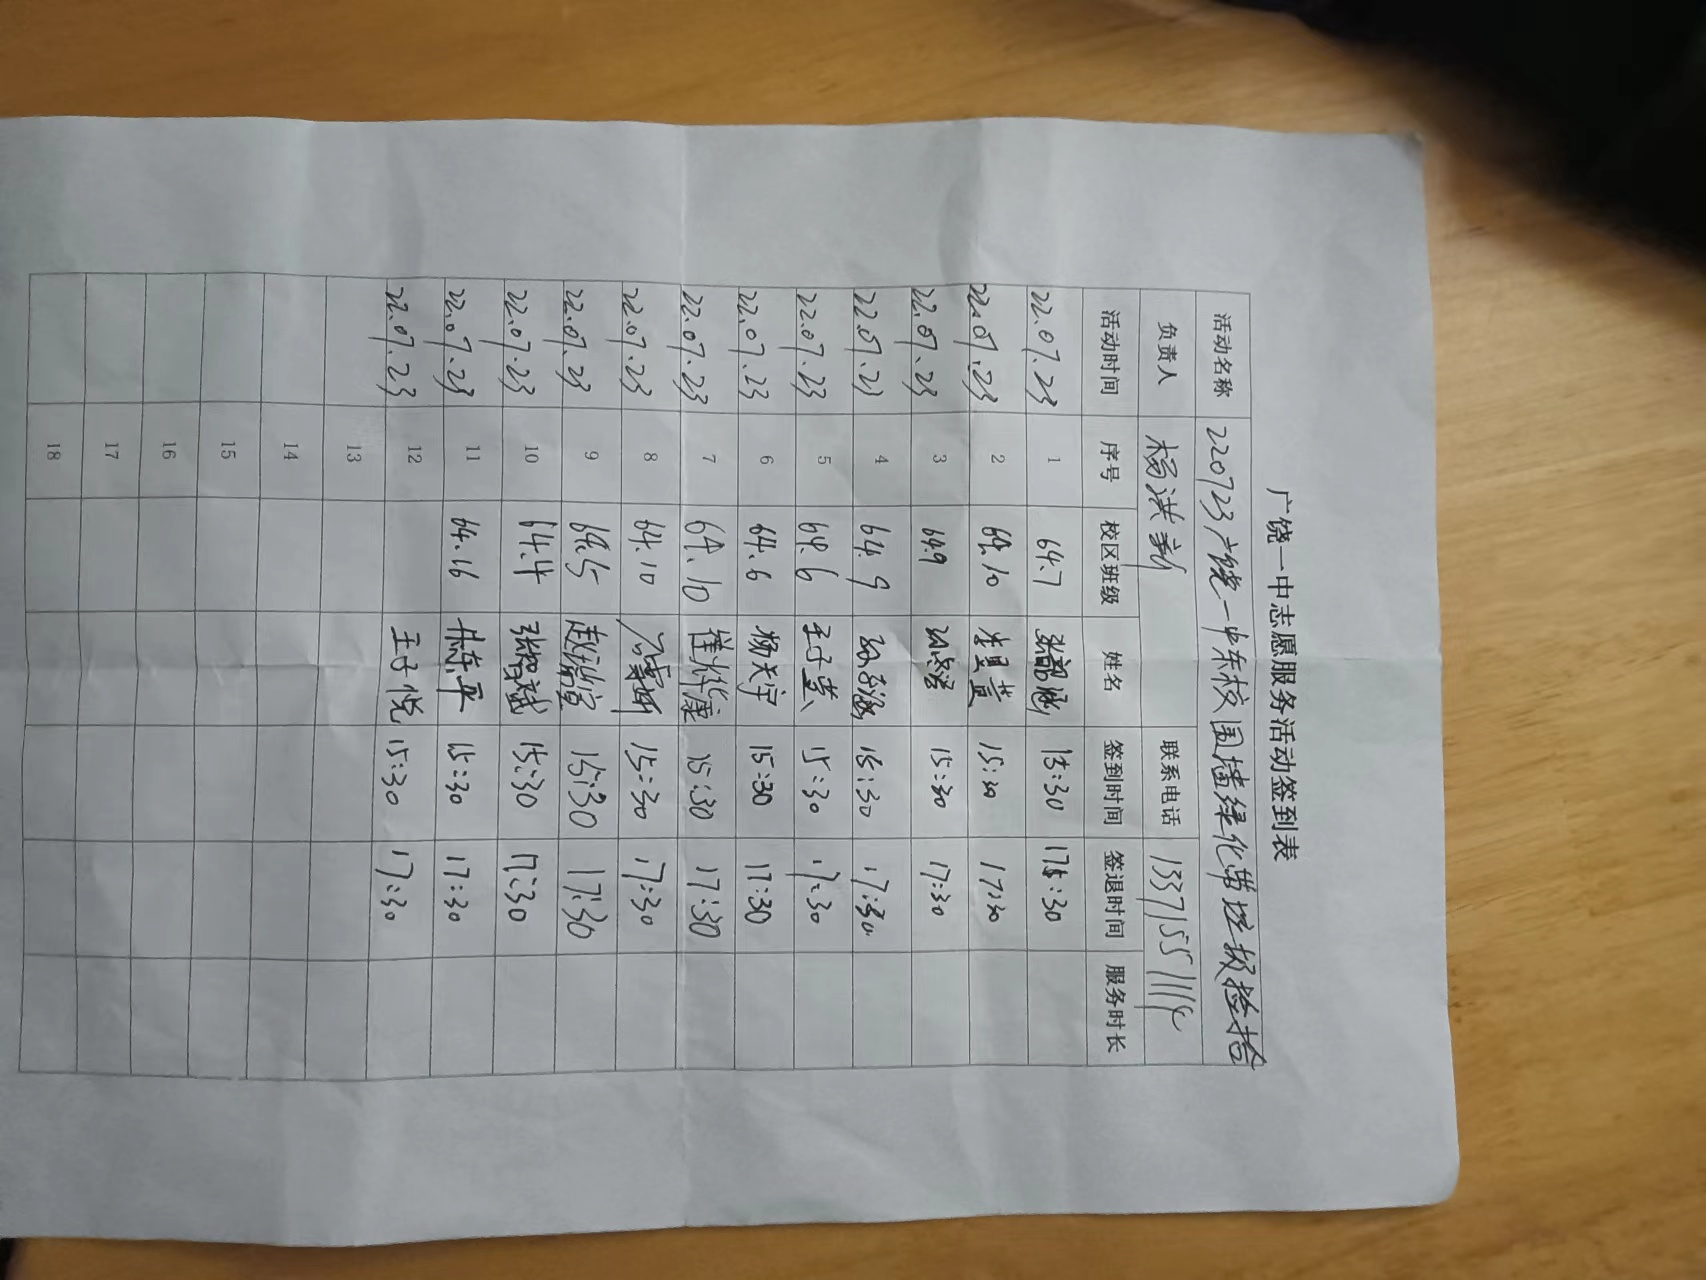 广饶一中志愿服务活动签到表
活动名称 220723广饶一中东校围墙绿化带垃圾捡拾
负责人 杨洪新 联系电话 13371551114
活动时间 序号 校区班级 姓名 签到时间 签退时间 服务时长
22.07.23 1 64.7 15:30 17:30
22.07.23 2 64.10 15:30 17:30
22.07.23 3 64.9 15:30 17:30
22.07.23 4 64.9 15:30 17:30
22.07.23 5 64.6 王子萱 15:30 17:30
22.07.23 6 64.6 杨天宇 15:30 17:30
22.07.23 7 64.10 15:30 17:30
22.07.23 8 64.10 15:30 17:30
22.07.23 9 64.15 赵瑞宣 15:30 17:30
22.07.23 10 64.4 张智斌 15:30 17:30
22.07.23 11 64.16 15:30 17:30
22.07.23 12 王子悦 15:30 17:30
13
14
15
16
17
18